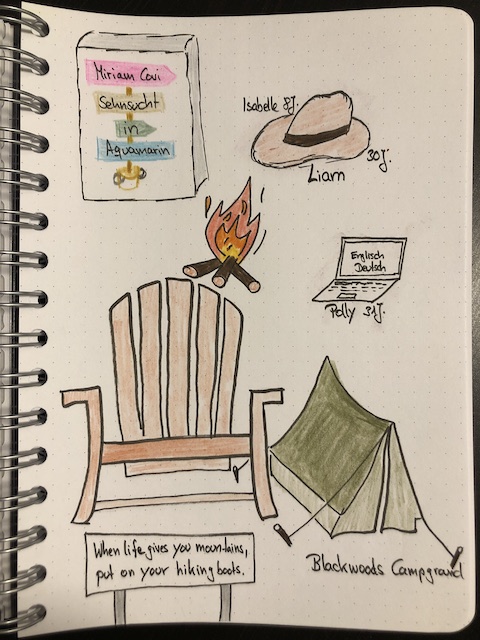 Miriam Covi
Sehnsucht
in
Aquamarin
Isabelle 8J.
30J.
Liam
Englisch
Deutsch
Polly 31J.
When life gives you mountains,
put on your hiking boots.
Blackwoods Campground